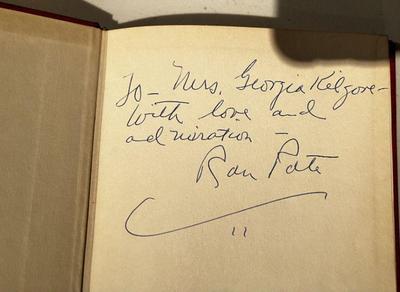 To - Mrs. Georgia Kilgore -
With love and
admiration -
Ron Pate
"